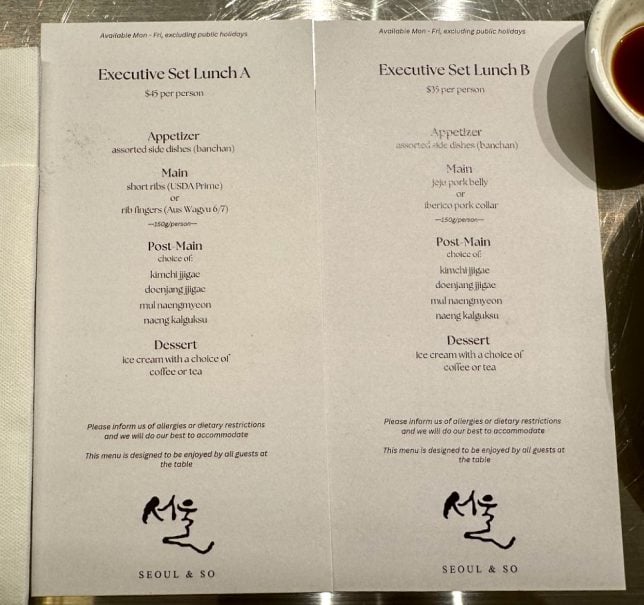 Available Mon - Fri, excluding public holidays
Executive Set Lunch A
$45 per person
Appetizer
assorted side dishes (banchan)
Main
short ribs (USDA Prime)
or
rib fingers (Aus Wagyu 6/7)
—150g/person—
Post-Main
choice of:
kimchi jjigae
doenjang jjigae
mul naengmyeon
naeng kalguksu
Dessert
ice cream with a choice of
coffee or tea
Please inform us of allergies or dietary restrictions
and we will do our best to accommodate
This menu is designed to be enjoyed by all guests at
the table
서울
SEOUL & SO
Available Mon - Fri, excluding public holidays
Executive Set Lunch B
$35 per person
Appetizer
assorted side dishes (banchan)
Main
jeju pork belly
or
iberico pork collar
—150g/person—
Post-Main
choice of:
kimchi jjigae
doenjang jjigae
mul naengmyeon
naeng kalguksu
Dessert
ice cream with a choice of
coffee or tea
Please inform us of allergies or dietary restrictions
and we will do our best to accommodate
This menu is designed to be enjoyed by all guests at
the table
서울
SEOUL & SO